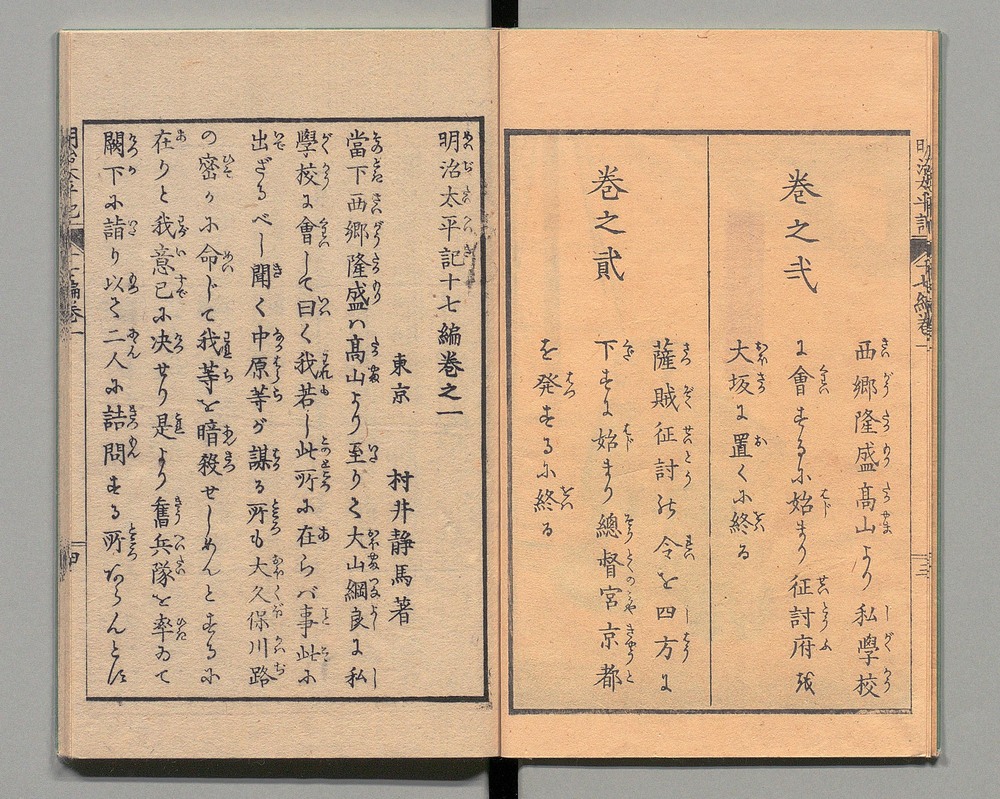 巻之弌
西郷隆盛高山より私學校
に會するに始まり征討府を
大坂に置くに終る
巻之貳
薩賊征討の令を四方に
下すに始まり總督宮京都
を発するに終る
明治太平記十七編巻之一
東京 村井静馬著
當下西郷隆盛ハ髙山より至りて大山綱良に私
學校に會して曰く我若し此所に在らバ事此に
出ざるべし聞く中原等が謀る所も大久保川路
の密かに命じて我等を暗殺せしめんとするに
在りと我意已に决せり是より奮兵隊を率ゐて
闕下に詣り以て二人に詰問する所あらんとに